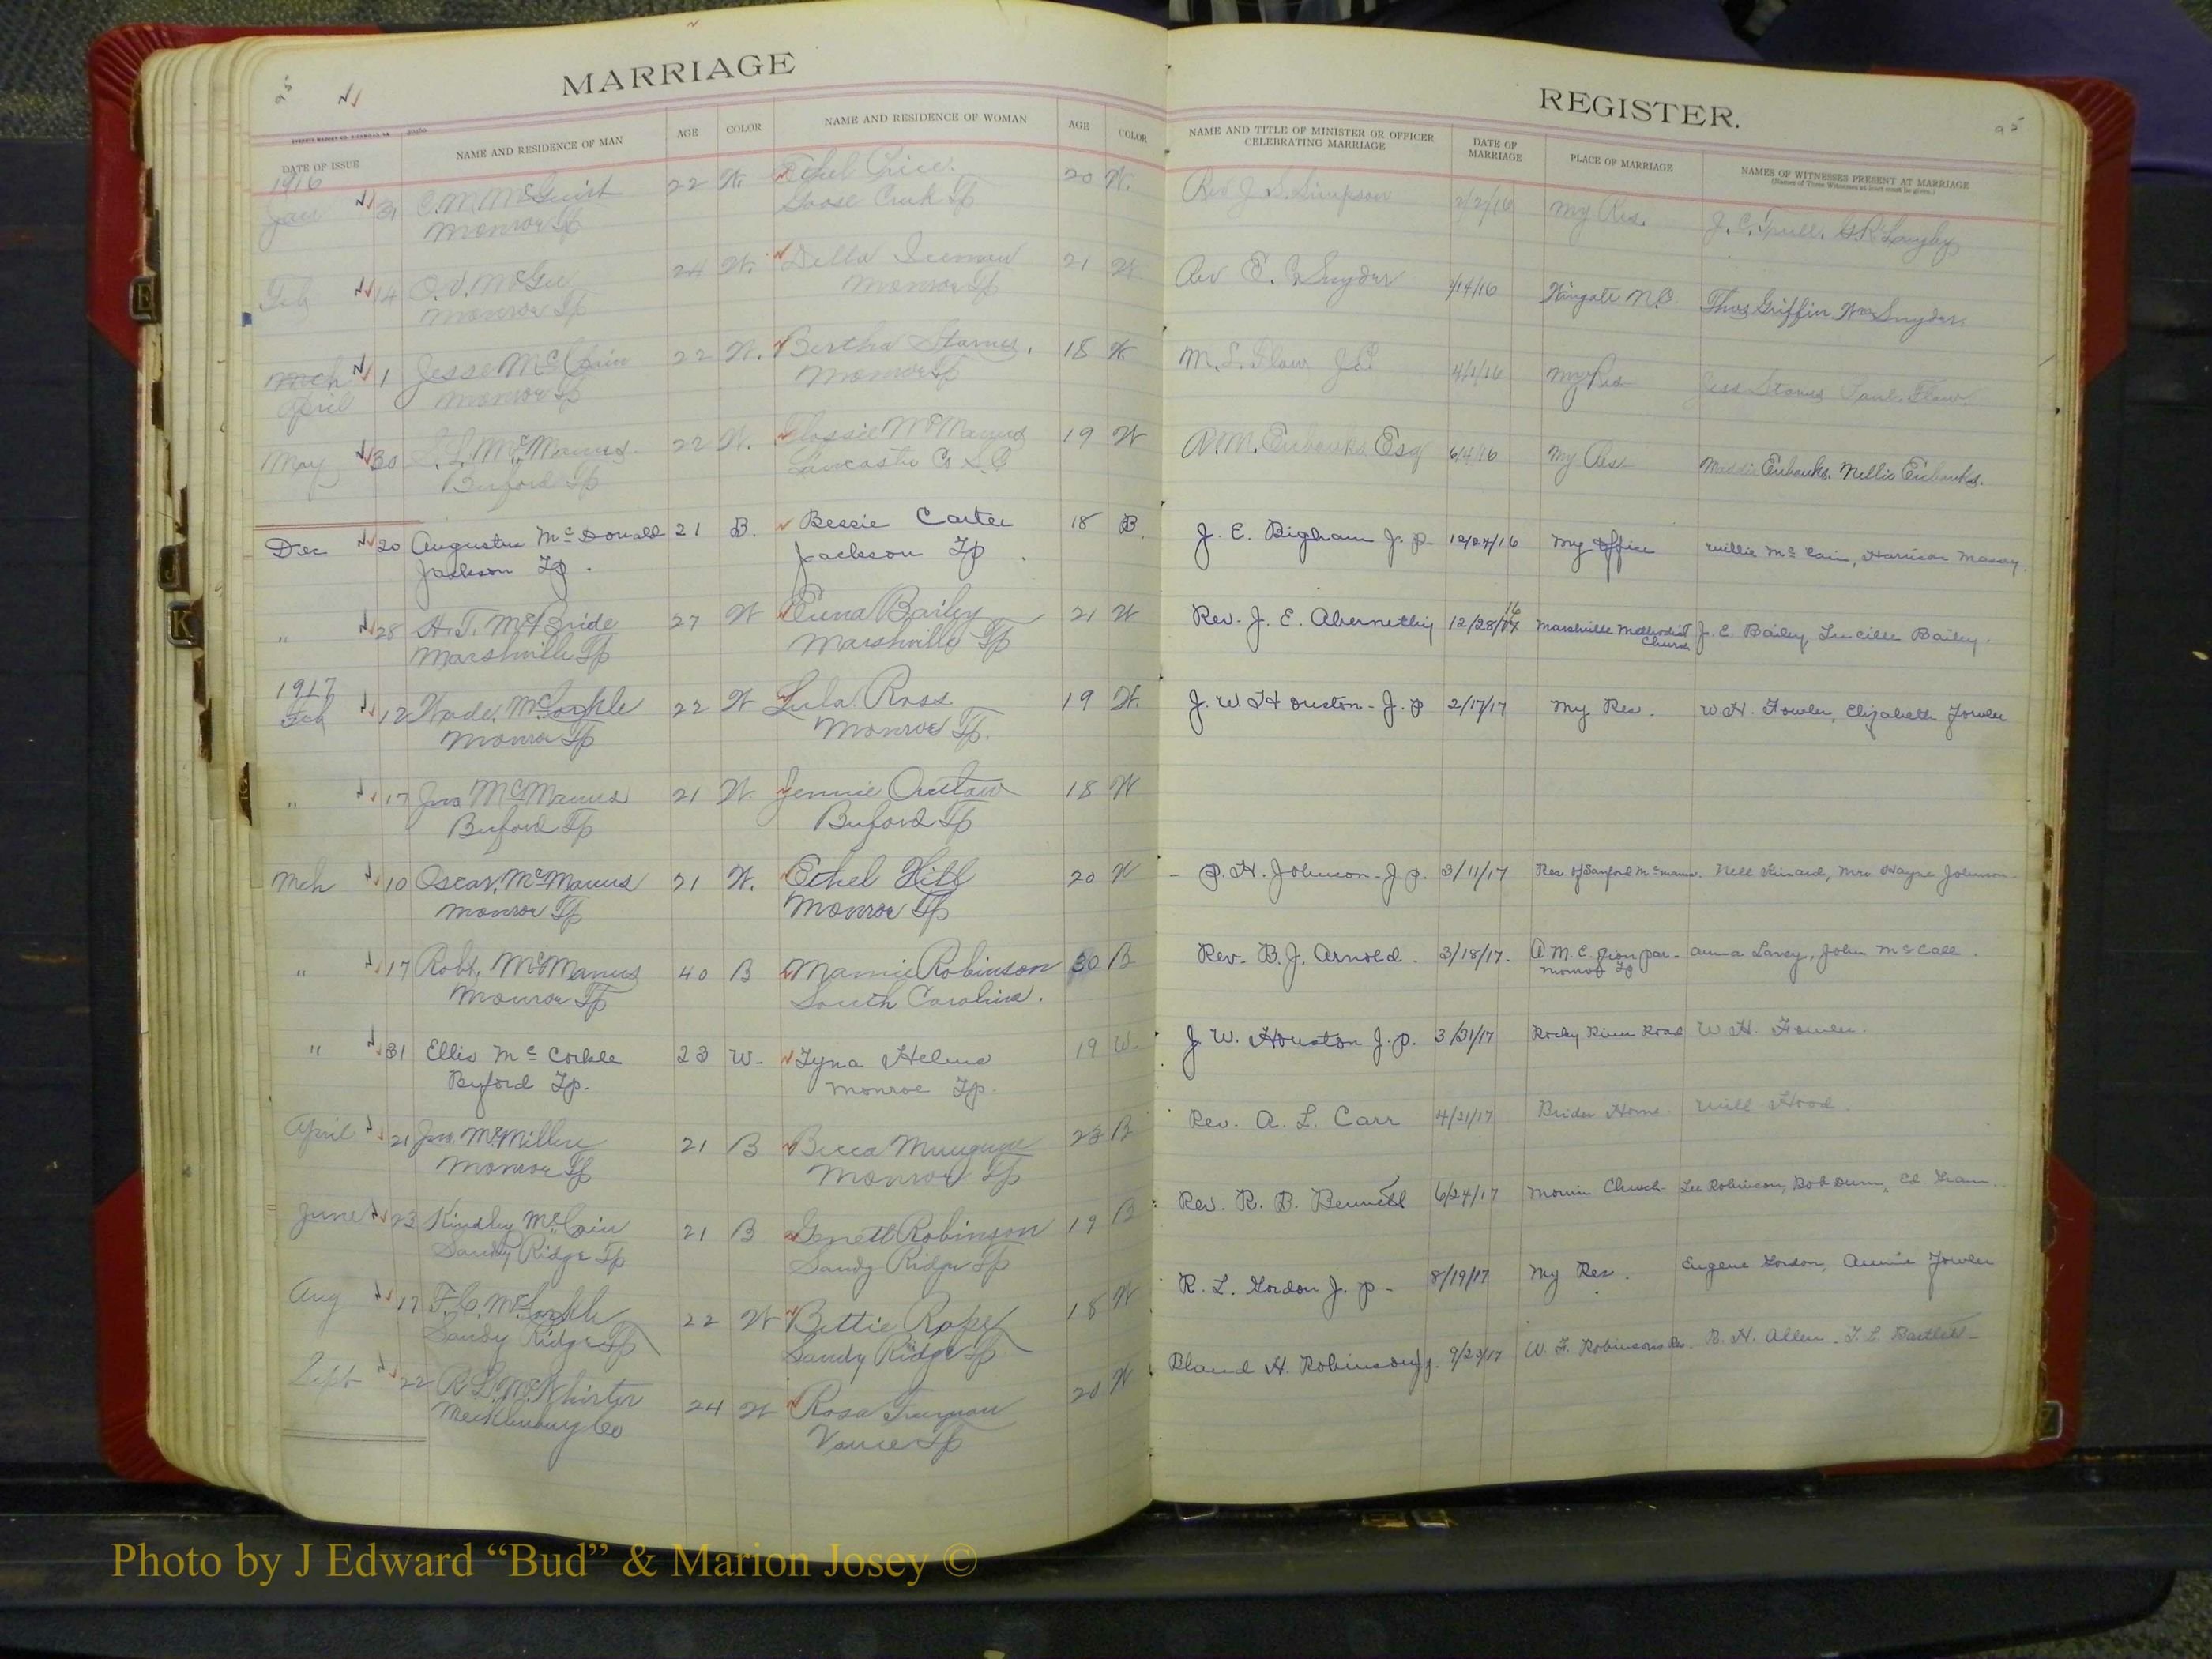 MARRIAGE
REGISTER.
DATE OF ISSUE NAME AND RESIDENCE OF MAN AGE COLOR NAME AND RESIDENCE OF WOMAN AGE COLOR NAME AND TITLE OF MINISTER OR OFFICER CELEBRATING MARRIAGE DATE OF MARRIAGE PLACE OF MARRIAGE NAMES OF WITNESSES PRESENT AT MARRIAGE
(Names of Three Witnesses at least must be given.)
1916
Jan 31 C. M. McGuirt 22 W. Ethel Price. 20 W. Rev J. S. Simpson 2/2/16 My Res. J. C.
Monroe Tp Goose Creek Tp
Feb 14 McGee 24 W. Della 21 W Rev E. C. Snyder /14/16 Wingate N.C. Thos Griffin Wm Snyder
Monroe Tp Monroe Tp
Mch 1 Jesse McCain 22 W. Bertha Starnes. 18 W M. L. Flow J.P. 4/1/16 My Res Starnes Flow
April Monroe Tp Monroe Tp
May 30 McManus 22 W. Flossie McManus 19 W A. M. Eubanks Esq 6/4/16 My Res Maddie Eubanks. Nellie Eubanks.
Buford Tp Lancaster Co S.C
Dec 20 Augustus McDonald 21 B. Bessie Carter 18 B. J. E. Bigham J. P. 12/24/16 My Office Willie McCain, Harrison Massey.
Jackson Tp. Jackson Tp.
" 28 H. T. McBride 27 W Bailey 21 W Rev. J. E. Abernethy 12/28/16 Marshville Methodist Church J. E. Bailey, Lucille Bailey.
Marshville Tp Marshville Tp
1917
Feb 12 Wade McCorkle 22 W Lula Ross 19 W. J. W. Houston - J. P 2/17/17 My Res. W. H. Fowler, Elizabeth Fowler
Monroe Tp Monroe Tp.
" 17 Jno McManus 21 W. Jennie Outlaw 18 W
Buford Tp Buford Tp
Mch 10 Oscar McManus 21 W. Ethel Hill 20 W P. H. Johnson - J. P. 3/11/17 Res. of Sanford McManus. Nell Kinard, Mrs Wayne Johnson
Monroe Tp Monroe Tp
" 17 Robt. McManus 40 B Mamie Robinson 30 B Rev. B. J. Arnold. 3/18/17. A. M. E. Zion par. Anna, John McCall.
Monroe Tp South Carolina. Monroe Tp
" 31 Ellis McCorkle 23 W- Zyna Helms 19 W- J. W. Houston J. P. 3/31/17 Rocky River Road W. H. Fowler.
Buford Tp. Monroe Tp.
April 21 Jno. McMillan 21 B Becca 23 B Rev. A. L. Carr 4/21/17 Brides Home Will Hood.
Monroe Tp Monroe Tp
June 23 Kindley McCain 21 B Robinson 19 B Rev. R. B. Bennett 6/24/17 Church Lee Robinson, Bob Dunn, Ed
Sandy Ridge Tp Sandy Ridge Tp
Aug 17 F. C. McCorkle 22 W Bettie Rape 18 W R. L. Gordon J. P- 8/19/17 My Res. Eugene Gordon, Annie Fowler
Sandy Ridge Tp Sandy Ridge Tp
Sept 22 R. L. McWhirter 24 W Rosa 20 W Bland H. Robinson 9/23/17 W. F. Robinsons Res. R. H. Allen - T. L. Bartlett
Mecklenburg Co Vance Tp
E
J
K
Photo by J Edward “Bud” & Marion Josey ©